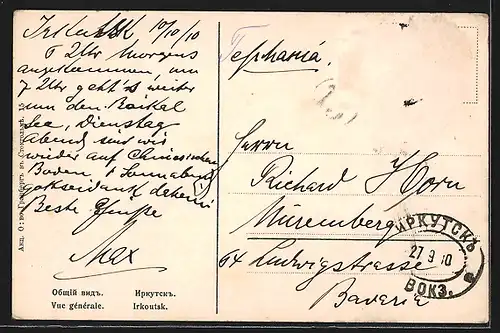 Irkutsk 10/10/10
6 Uhr Morgens
angekommen, um
7 Uhr geht's weiter
um den Baikal
See, Dienstag
abend sind wir
wieder auf Chinesischem
Boden, & Sonnabend
gottseidank daheim
Beste Grüsse
Max
Германiя.
Herrn
Richard Horn
Nüremberg
64 Ludwigstrasse
Bavaria
ИРКУТСКЪ
27 9 10
ВОКЗ.
Общiй видъ. Иркутскъ.
Vue générale. Irkoutsk.
Акц. О-во Гранбергъ въ Стокгольмѣ.